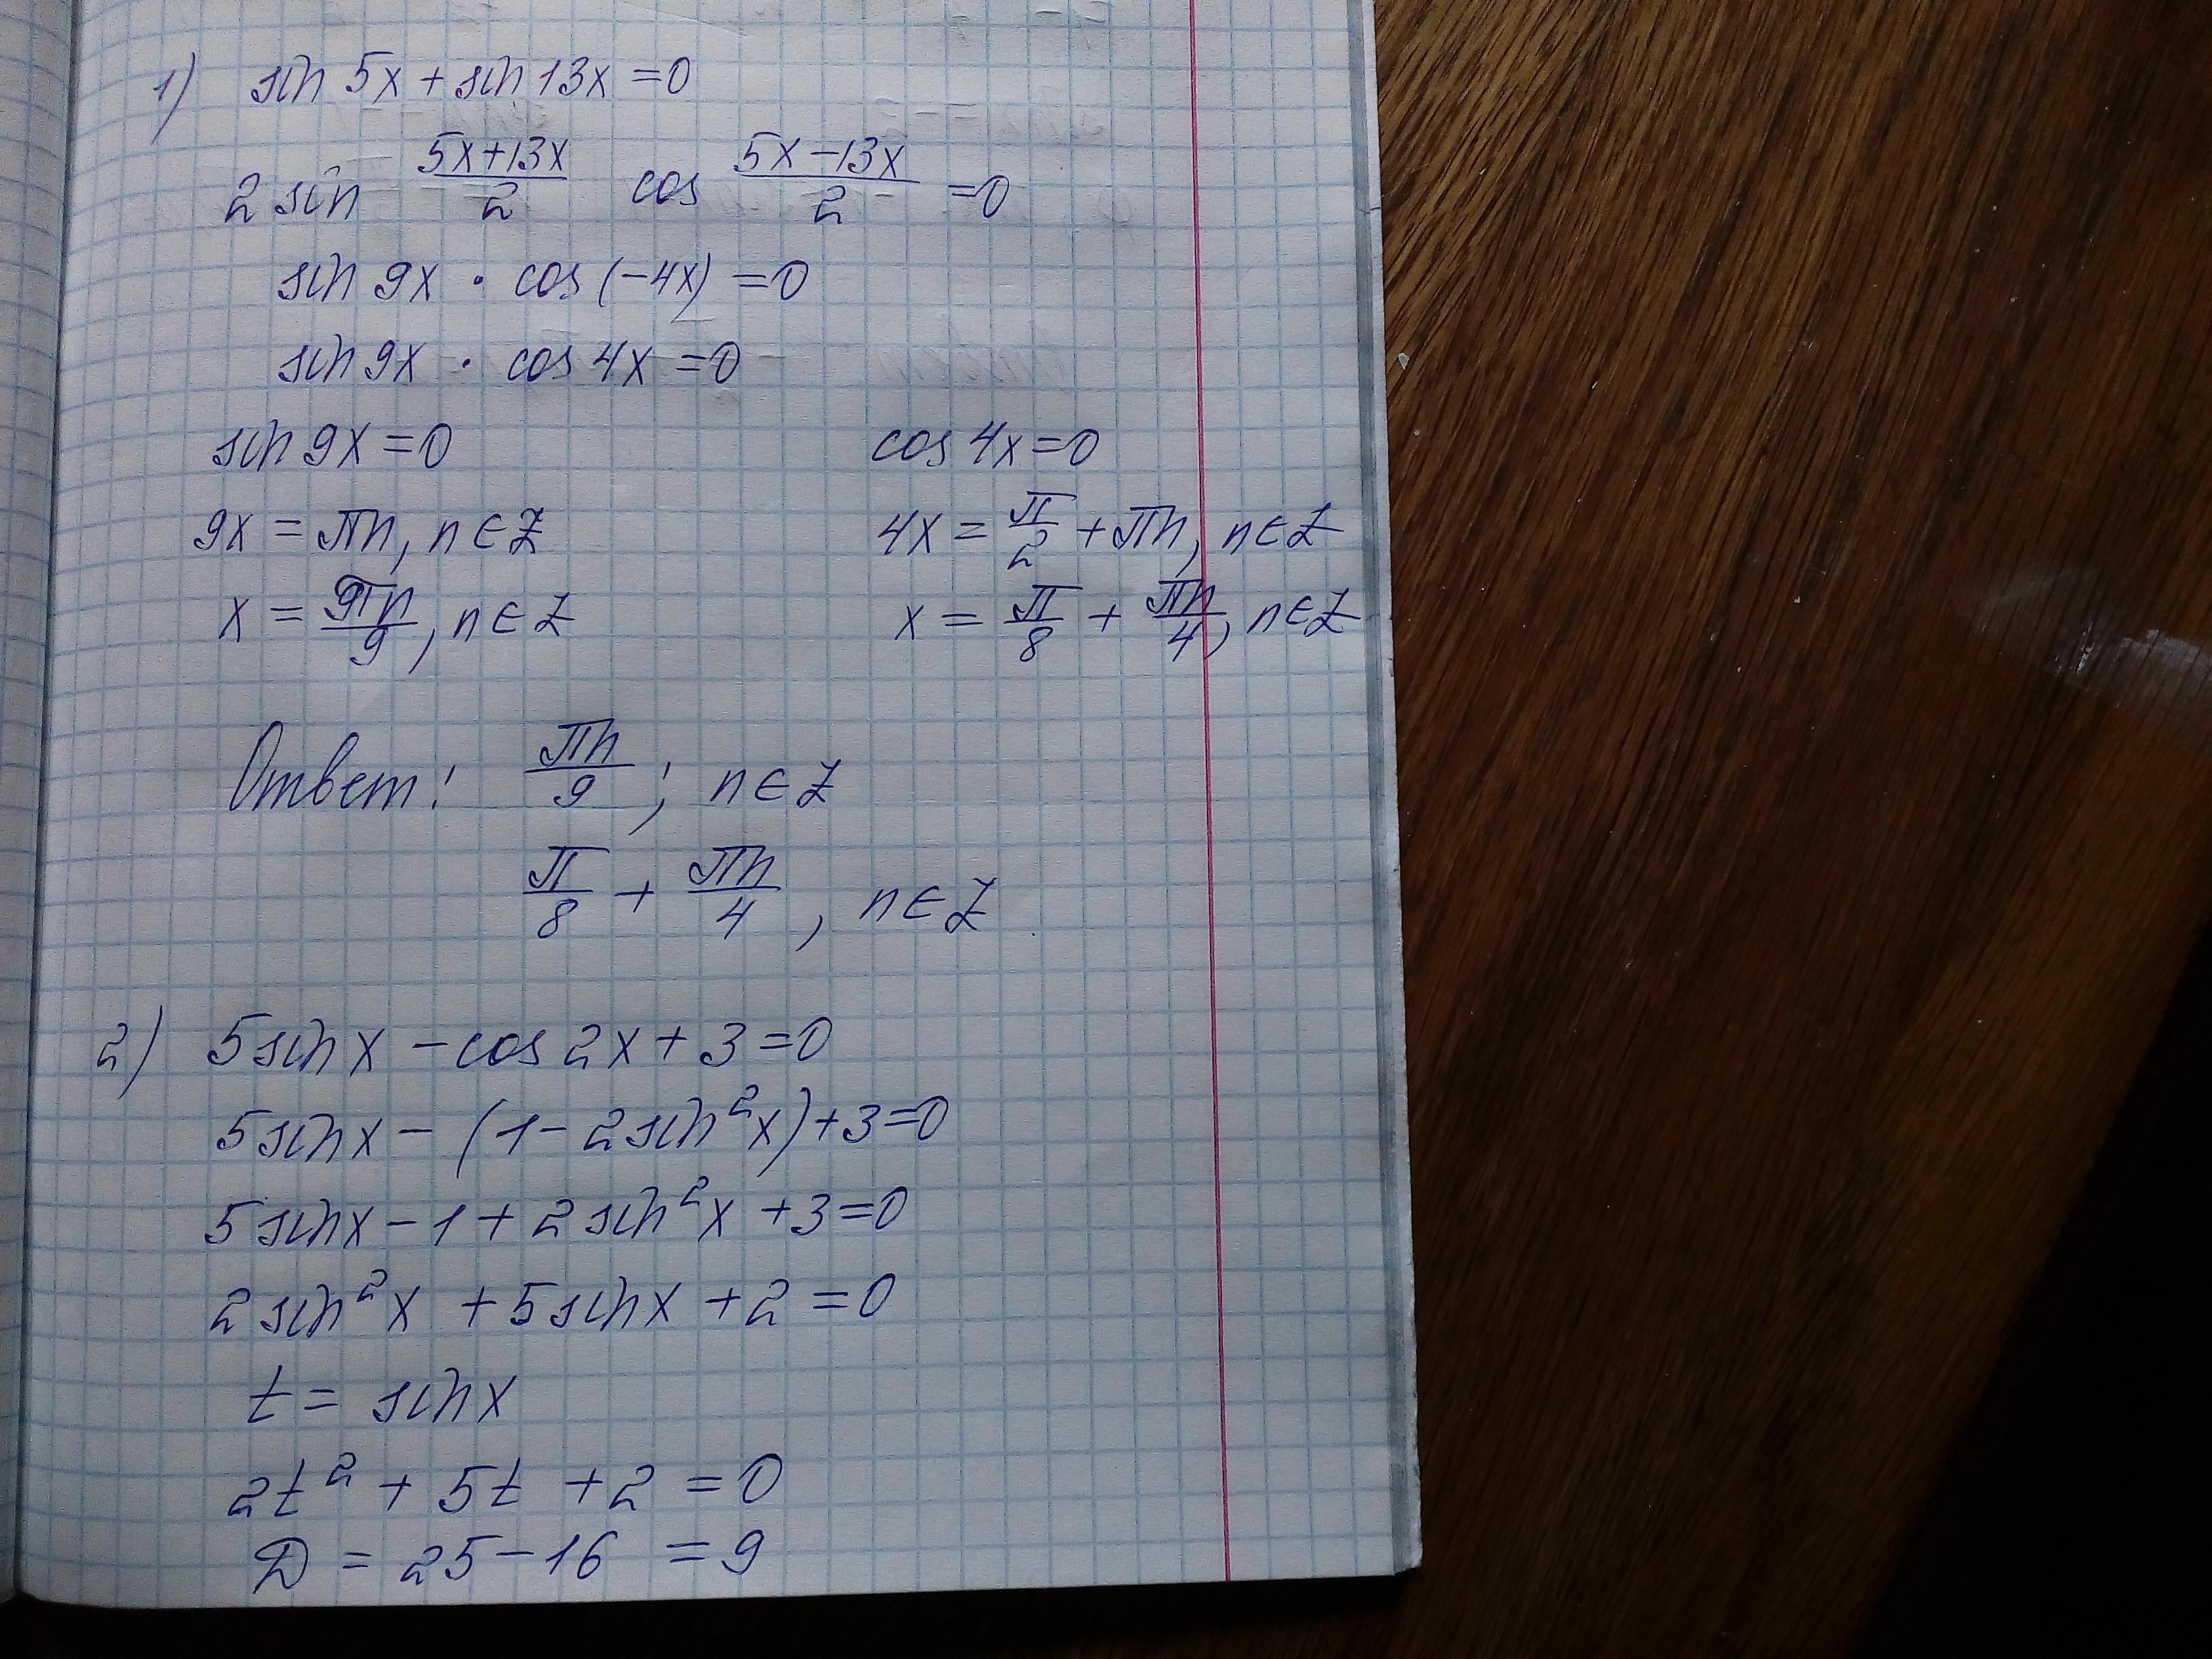 1) sin 5x + sin 13x = 0
2 sin (5x+13x)/2 cos (5x−13x)/2 = 0
sin 9x · cos (−4x) = 0
sin 9x · cos 4x = 0
sin 9x = 0 cos 4x = 0
9x = πn, n∈Z 4x = π/2 + πn, n∈Z
x = 9πn/9, n∈Z x = π/8 + πn/4, n∈Z
Ответ: πn/9; n∈Z
π/8 + πn/4, n∈Z
2) 5sinx − cos 2x + 3 = 0
5sinx − (1 − 2sin²x) + 3 = 0
5sinx − 1 + 2sin²x + 3 = 0
2sin²x + 5sinx + 2 = 0
t = sinx
2t² + 5t + 2 = 0
D = 25 − 16 = 9